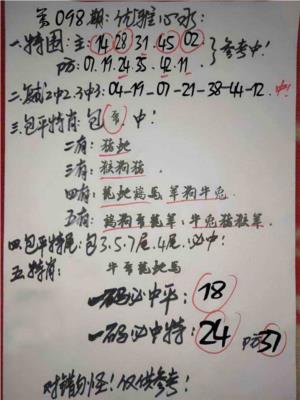 第098期:优雅心水:
一.特围:主:14 28 31 45 02 参考中!
防:07.19.24.35.42.11
二.2中2.3中3:04-19-07-21-38-44-12.中!
三.包平特肖:包 中!
二肖:猪蛇
三肖:猴狗猪
四肖:龍蛇鷄馬 羊狗牛兔
五肖:鷄狗 龍羊.牛兔猪猴羊
四.包平特尾:包3.5.7尾.4尾.必中:
五.特肖: 牛 龍蛇馬
一码必中平:18
一码必中特:24 防37
对错勿怪!仅供参考!